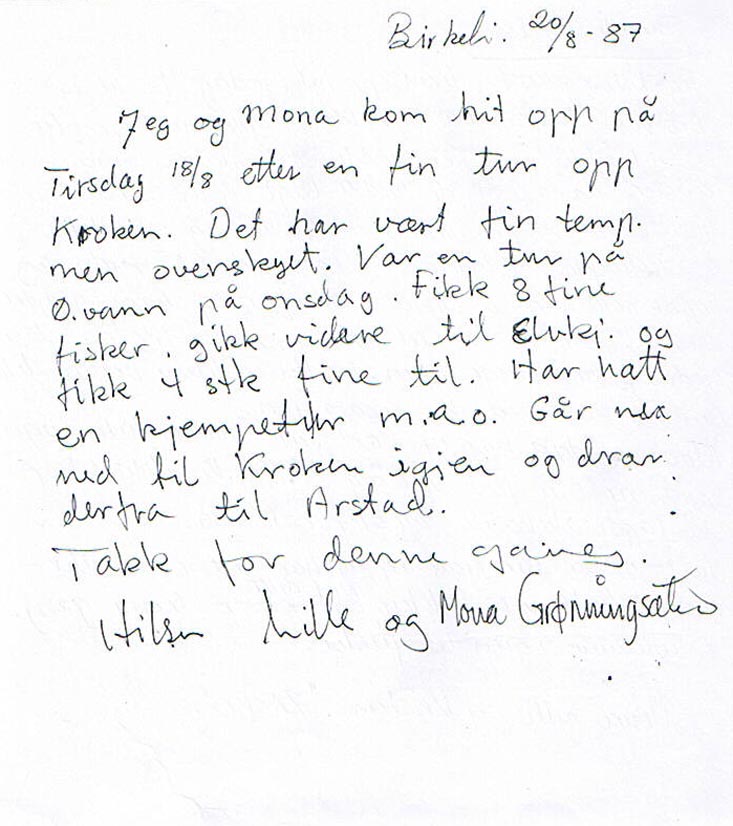 Birkeli. 20/8-87
Jeg og Mona kom hit opp på
Tirsdag 18/8 etter en fin tur opp
Kroken. Det har vært fin temp.
men overskyet. Var en tur på
Ø.vann på onsdag. Fikk 8 fine
fisker. gikk videre til Elvkj. og
fikk 4 stk fine til. Har hatt
en kjempetur m.a.o. Går nå
ned til Kroken igjen og drar
derfra til Arstad.
Takk for denne gangen.
Hilsen Lille og Mona Grønningsæter